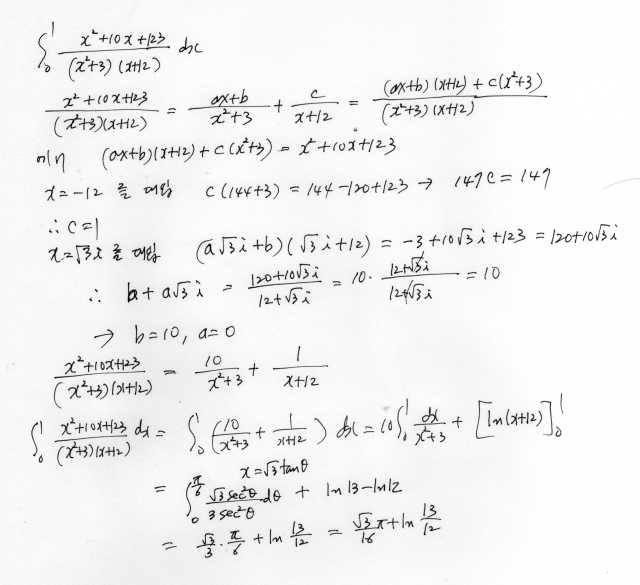 ∫₀¹ (x²+10x+123)/((x²+3)(x+12)) dx
(x²+10x+123)/((x²+3)(x+12)) = (ax+b)/(x²+3) + c/(x+12) = ((ax+b)(x+12)+c(x²+3))/((x²+3)(x+12))
에서 (ax+b)(x+12)+c(x²+3) = x²+10x+123
x=-12 를 대입 c(144+3) = 144-120+123 → 147c = 147
∴ c=1
x=√3i 를 대입 (a√3i+b)(√3i+12) = -3+10√3i+123 = 120+10√3i
∴ b+a√3i = (120+10√3i)/(12+√3i) = 10·(12+√3i)/(12+√3i) = 10
→ b=10, a=0
(x²+10x+123)/((x²+3)(x+12)) = 10/(x²+3) + 1/(x+12)
∫₀¹ (x²+10x+123)/((x²+3)(x+12)) dx = ∫₀¹ (10/(x²+3) + 1/(x+12)) dx = 10∫₀¹ dx/(x²+3) + [ln(x+12)]₀¹
x=√3tanθ
= ∫₀^(π/6) (√3sec²θ)/(3sec²θ) dθ + ln13-ln12
= √3/3 · π/6 + ln 13/12 = √3/18 π + ln 13/12